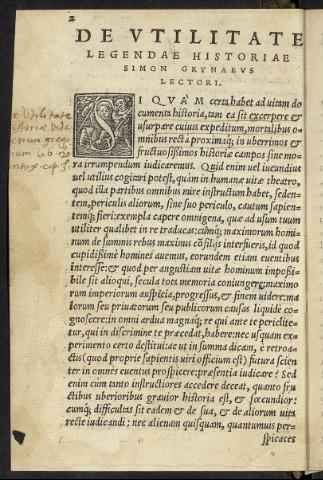 2
DE VTILITATE
LEGENDAE HISTORIAE
SIMON GRYNAEVS
LECTORI.
SI QVA'M certa habet ad uitam do
cumenta historia, tam ea sit excerpere &
usurpare cuiuis expeditum, mortalibus o-
mnibus recta proximaq; in uberrimos &
fructuosissimos historiæ campos sine mo-
ra irrumpendum iudicarem. Quid enim uel iucundius
uel utilius cogitari potest, quàm in humanæ uitæ theatro,
quod illa partibus omnibus mire instructum habet, seden-
tem, periculis aliorum, sine suo periculo, cautum sapien-
temq; fieri: exempla capere omnigena, quæ ad usum tuum
utiliter qualibet in re traducas: cumq; maximorum homi-
num de summis rebus maximus consilijs interfueris, id quod
cupidißime homines auemus, eorundem etiam euentibus
interesse: & quod per angustiam uitæ hominum impoßi-
bile sit alioqui, secula tota memoria coniungere: maximo
rum imperiorum auspicia, progressus, & finem uidere: ma
lorum seu priuatorum seu publicorum causas liquidè co-
gnoscere: in omni ardua magnaq; re qui ante te periclite-
tur, qui in discrimine te præcedat, habere: nec usquam ex-
perimento certo destitui: ac ut in summa dicam, è retroa-
ctis (quod proprie sapientis uiri officium est) futura scien
ter in omnes euentus prospicere: præsentia iudicare? Sed
enim cùm tanto instructiores accedere deceat, quanto fru
ctibus uberioribus grauior historia est, & fœcundior:
cumq; difficultas sit eadem & de sua, & de aliorum uita
recte iudicandi: nec alienam quisquam, quantumuis per-
spicaces